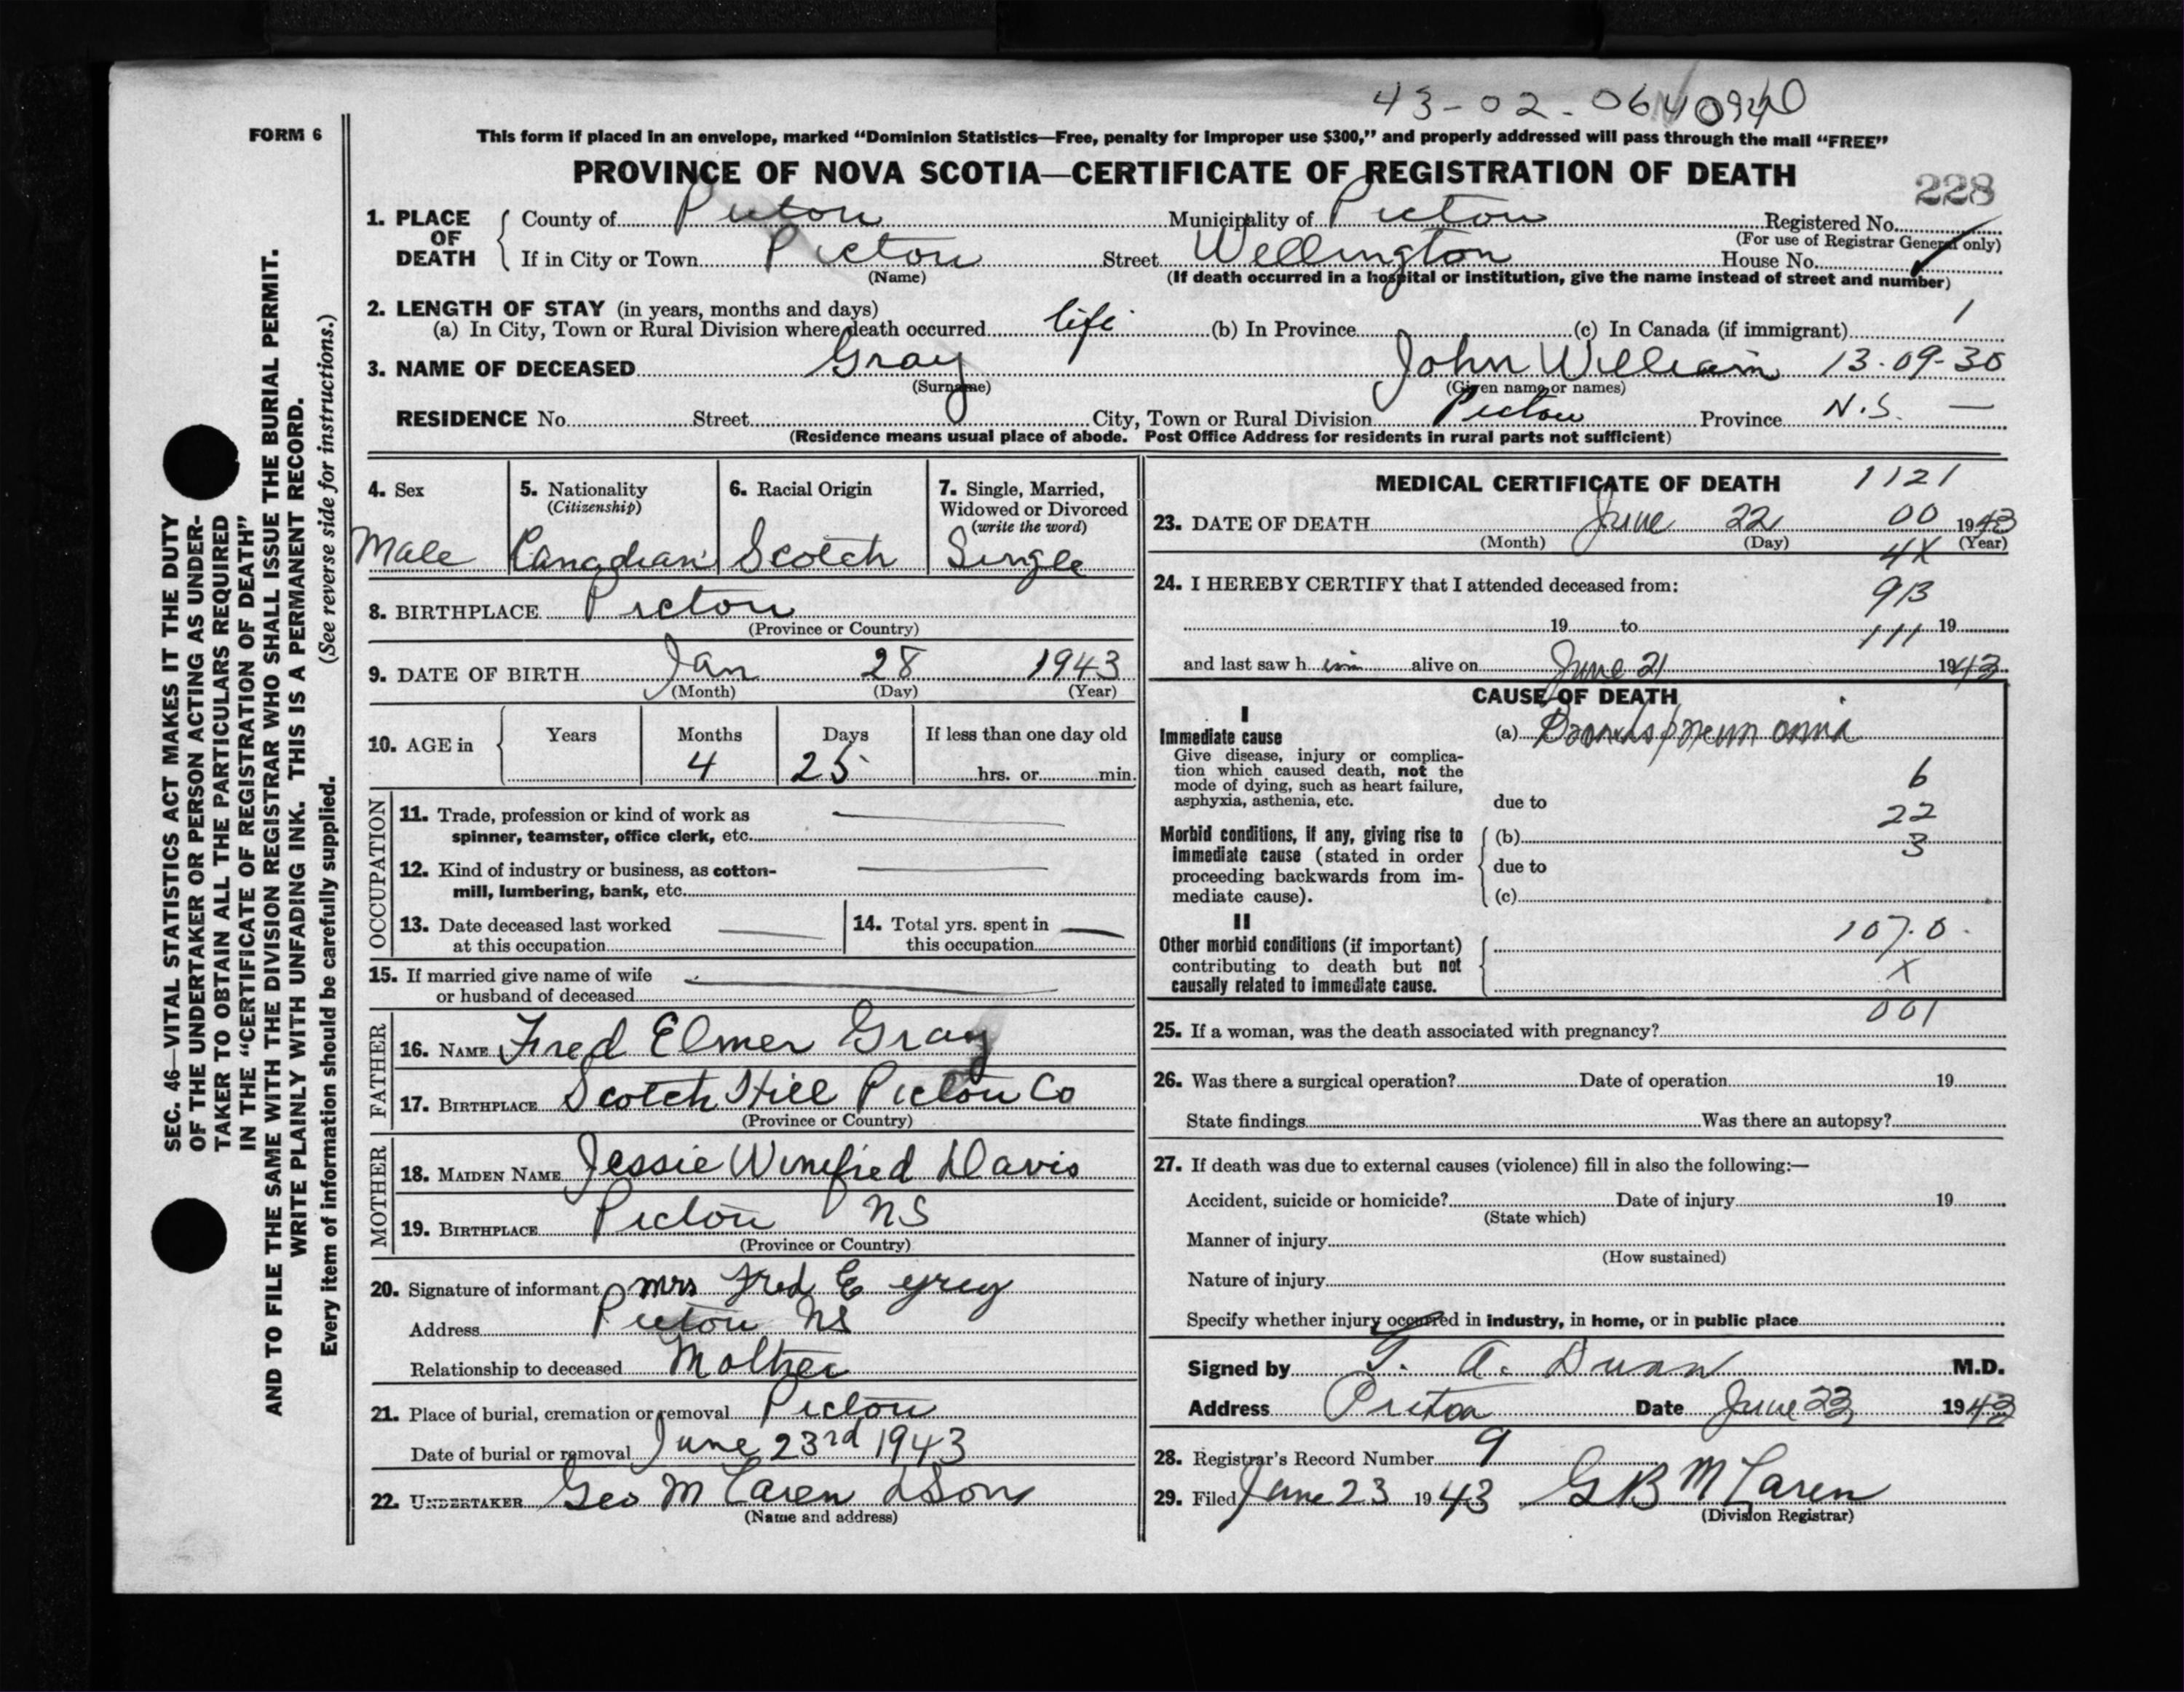 43-02-06
FORM 6
This form if placed in an envelope, marked “Dominion Statistics—Free, penalty for improper use $300,” and properly addressed will pass through the mail “FREE”
PROVINCE OF NOVA SCOTIA—CERTIFICATE OF REGISTRATION OF DEATH
228
1. PLACE OF DEATH County of Pictou Municipality of Pictou Registered No.
(For use of Registrar General only)
If in City or Town Pictou Street Wellington House No.
(Name) (If death occurred in a hospital or institution, give the name instead of street and number)
2. LENGTH OF STAY (in years, months and days)
(a) In City, Town or Rural Division where death occurred life (b) In Province (c) In Canada (if immigrant) 1
3. NAME OF DECEASED Gray John William 13-09-30
(Surname) (Given name or names)
RESIDENCE No. Street City, Town or Rural Division Pictou Province N.S. —
(Residence means usual place of abode. Post Office Address for residents in rural parts not sufficient)
4. Sex Male
5. Nationality (Citizenship) Canadian
6. Racial Origin Scotch
7. Single, Married, Widowed or Divorced (write the word) Single
8. BIRTHPLACE Pictou
(Province or Country)
9. DATE OF BIRTH Jan 28 1943
(Month) (Day) (Year)
10. AGE in Years Months Days If less than one day old
4 25 hrs. or min.
OCCUPATION
11. Trade, profession or kind of work as
spinner, teamster, office clerk, etc.
12. Kind of industry or business, as cotton-
mill, lumbering, bank, etc.
13. Date deceased last worked
at this occupation
14. Total yrs. spent in
this occupation
15. If married give name of wife
or husband of deceased
FATHER
16. NAME Fred Elmer Gray
17. BIRTHPLACE Scotch Hill Pictou Co
(Province or Country)
MOTHER
18. MAIDEN NAME Jessie Winifred Davis
19. BIRTHPLACE Pictou NS
(Province or Country)
20. Signature of informant Mrs Fred E Grey
Address Pictou NS
Relationship to deceased Mother
21. Place of burial, cremation or removal Pictou
Date of burial or removal June 23rd 1943
22. UNDERTAKER Geo McLaren & Sons
(Name and address)
MEDICAL CERTIFICATE OF DEATH 1121
23. DATE OF DEATH June 22 00 1943
(Month) (Day) 4X (Year)
24. I HEREBY CERTIFY that I attended deceased from: 913
19 to 111 19
and last saw h im alive on June 21 1943
CAUSE OF DEATH
I
Immediate cause
Give disease, injury or complica-
tion which caused death, not the
mode of dying, such as heart failure,
asphyxia, asthenia, etc.
(a) Bronchopneumonia
6
due to
22
Morbid conditions, if any, giving rise to
immediate cause (stated in order
proceeding backwards from im-
mediate cause).
(b)
3
due to
(c)
II
Other morbid conditions (if important)
contributing to death but not
causally related to immediate cause.
107.0.
X
001
25. If a woman, was the death associated with pregnancy?
26. Was there a surgical operation? Date of operation 19
State findings Was there an autopsy?
27. If death was due to external causes (violence) fill in also the following:—
Accident, suicide or homicide? Date of injury 19
(State which)
Manner of injury
(How sustained)
Nature of injury
Specify whether injury occurred in industry, in home, or in public place
Signed by A. Dunn M.D.
Address Pictou Date June 23 1943
28. Registrar’s Record Number 9
29. Filed June 23 1943 G B McLaren
(Division Registrar)
SEC. 46—VITAL STATISTICS ACT MAKES IT THE DUTY
OF THE UNDERTAKER OR PERSON ACTING AS UNDER-
TAKER TO OBTAIN ALL THE PARTICULARS REQUIRED
IN THE “CERTIFICATE OF REGISTRATION OF DEATH”
AND TO FILE THE SAME WITH THE DIVISION REGISTRAR WHO SHALL ISSUE THE BURIAL PERMIT.
WRITE PLAINLY WITH UNFADING INK. THIS IS A PERMANENT RECORD.
Every item of information should be carefully supplied. (See reverse side for instructions.)